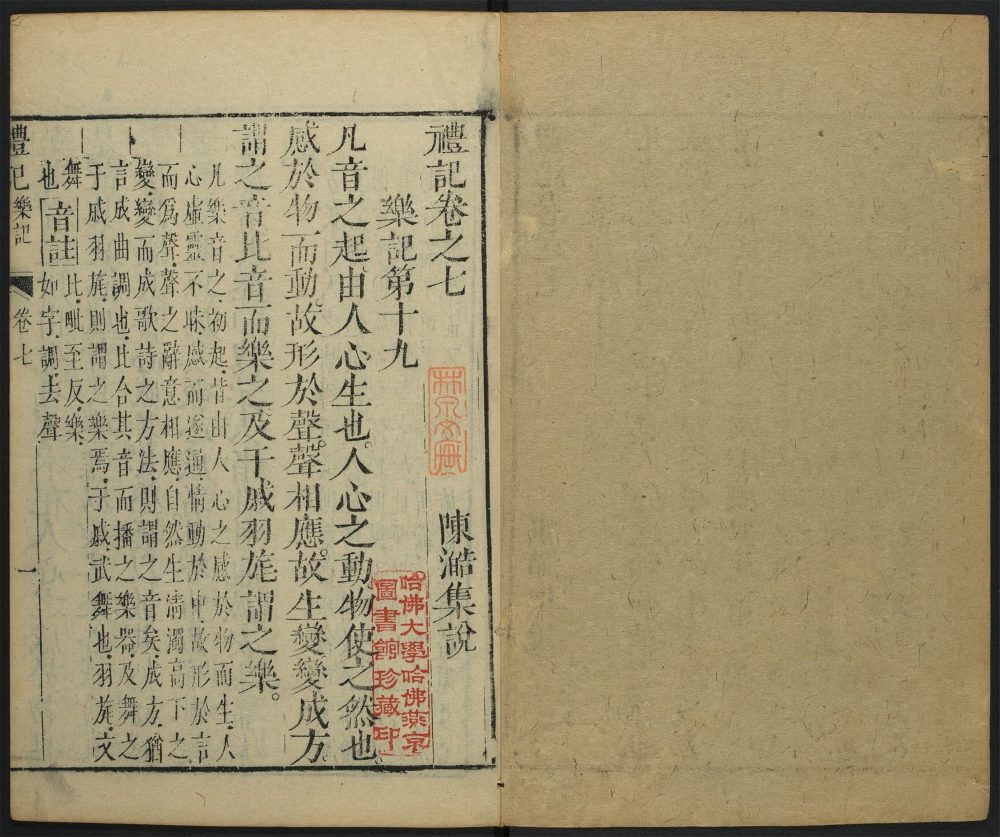 禮記卷之七
陳澔集說
樂記第十九
凡音之起由人心生也。人心之動物使之然也
感於物而動。故形於聲。聲相應。故生變變成方
謂之音比音而樂之及干戚羽旄謂之樂。
凡樂音之初起.皆由人心之感於物而生.人
心虛靈不昧.感而遂通.情動於中.故形於言
而爲聲.聲之辭意相應.自然生清濁高下之
變.變而成歌詩之方法.則謂之音矣.成方.猶
言成曲調也.比合其音而播之樂器.及舞之
干戚羽旄.則謂之樂焉.干戚.武舞也.羽旄.文
舞
也 音註 比.毗至反.樂.
如字.調.去聲
禮記 樂記 卷七 一
哈佛大學哈佛燕京
圖書館珍藏印